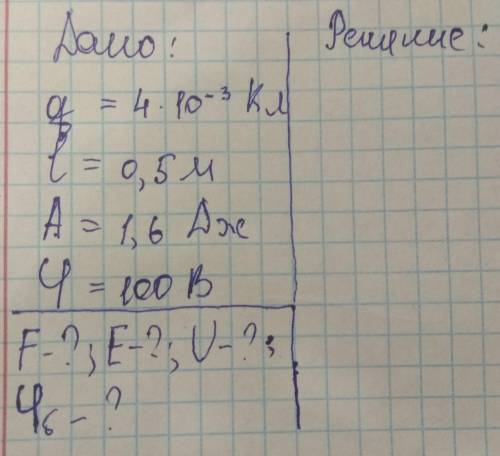 Дано:
Решение:
q = 4 · 10⁻³ Кл
l = 0,5 м
A = 1,6 Дж
φ = 100 В
F - ?; E - ?; U - ?;
φ₆ - ?